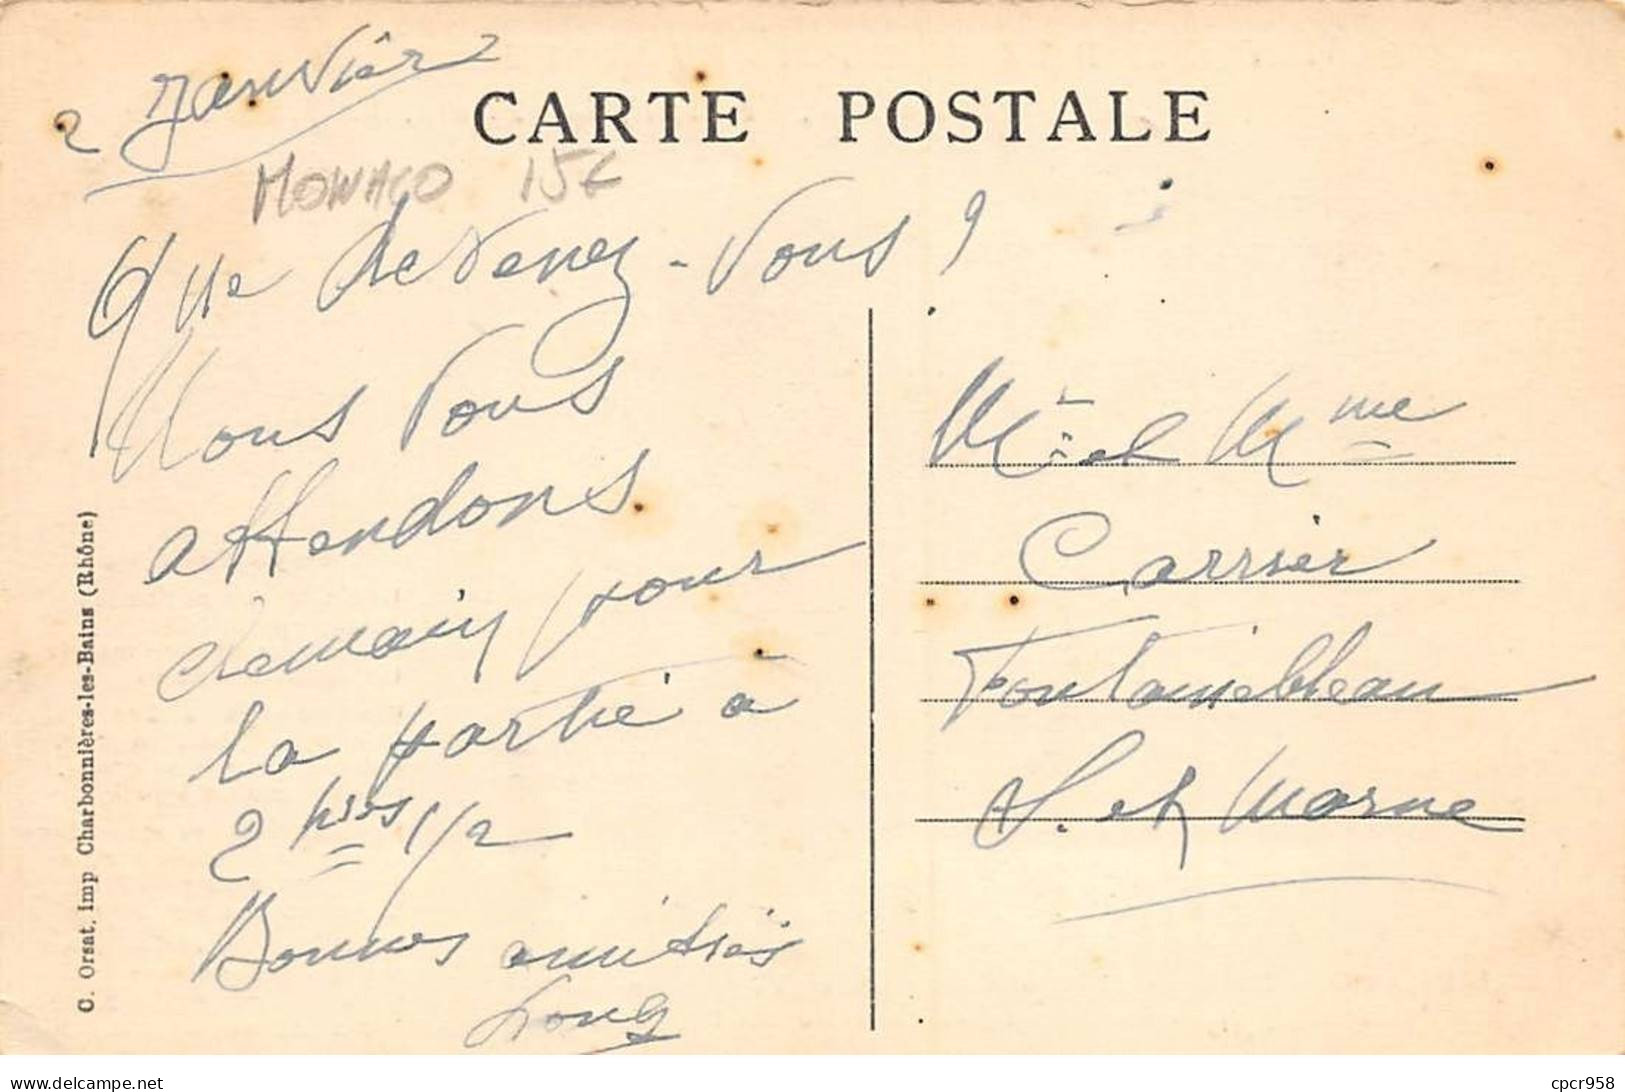 2 Janvier
CARTE POSTALE
MONACO 15€
Que devenez-vous ?
Nous vous
attendons
demain pour
la partie à
2 hres 1/2
Bonnes amitiés
Mr et Mme
Carrier
Fontainebleau
S. et Marne
C. Orsat, Imp Charbonnières-les-Bains (Rhône)
delcampe.net
cpcr958